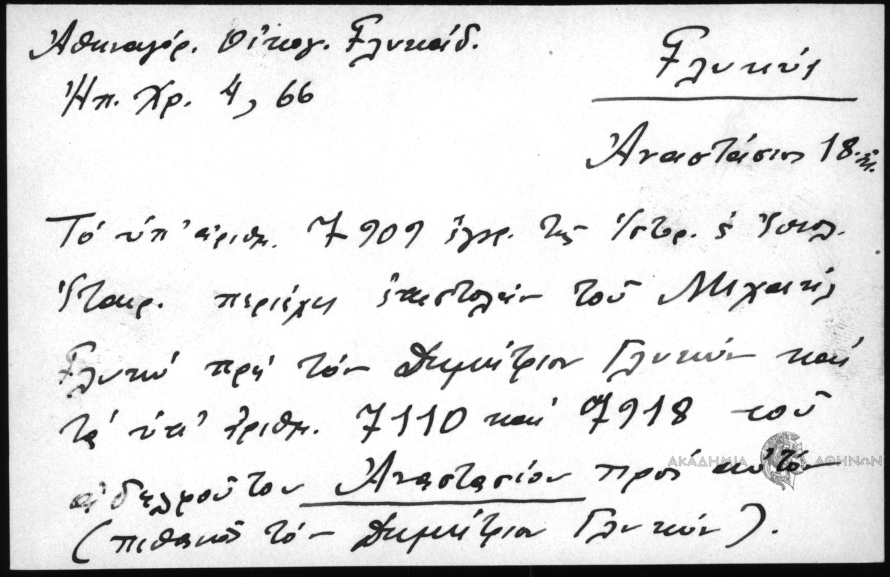 Ἀθηναγόρ. Οἰκογ. Γλυκάδ.
Ἠπ. Χρ. 4, 66
Γλυκύς
Ἀναστάσιος 18.
Τό ὑπ' ἀριθμ. 7909 ἔγγρ. τῆς
περιέχει ἐπιστολήν τοῦ Μιχαήλ
Γλυκύ πρός τόν Δημήτριον Γλυκύν καί
τά ὑπ' ἀριθμ. 7110 καί 7918 τοῦ
ἀδελφοῦ του Ἀναστασίου πρός αὐτόν
(πιθανῶς τόν Δημήτριον Γλυκύν).
ΑΚΑΔΗΜΙΑ ΑΘΗΝΩΝ